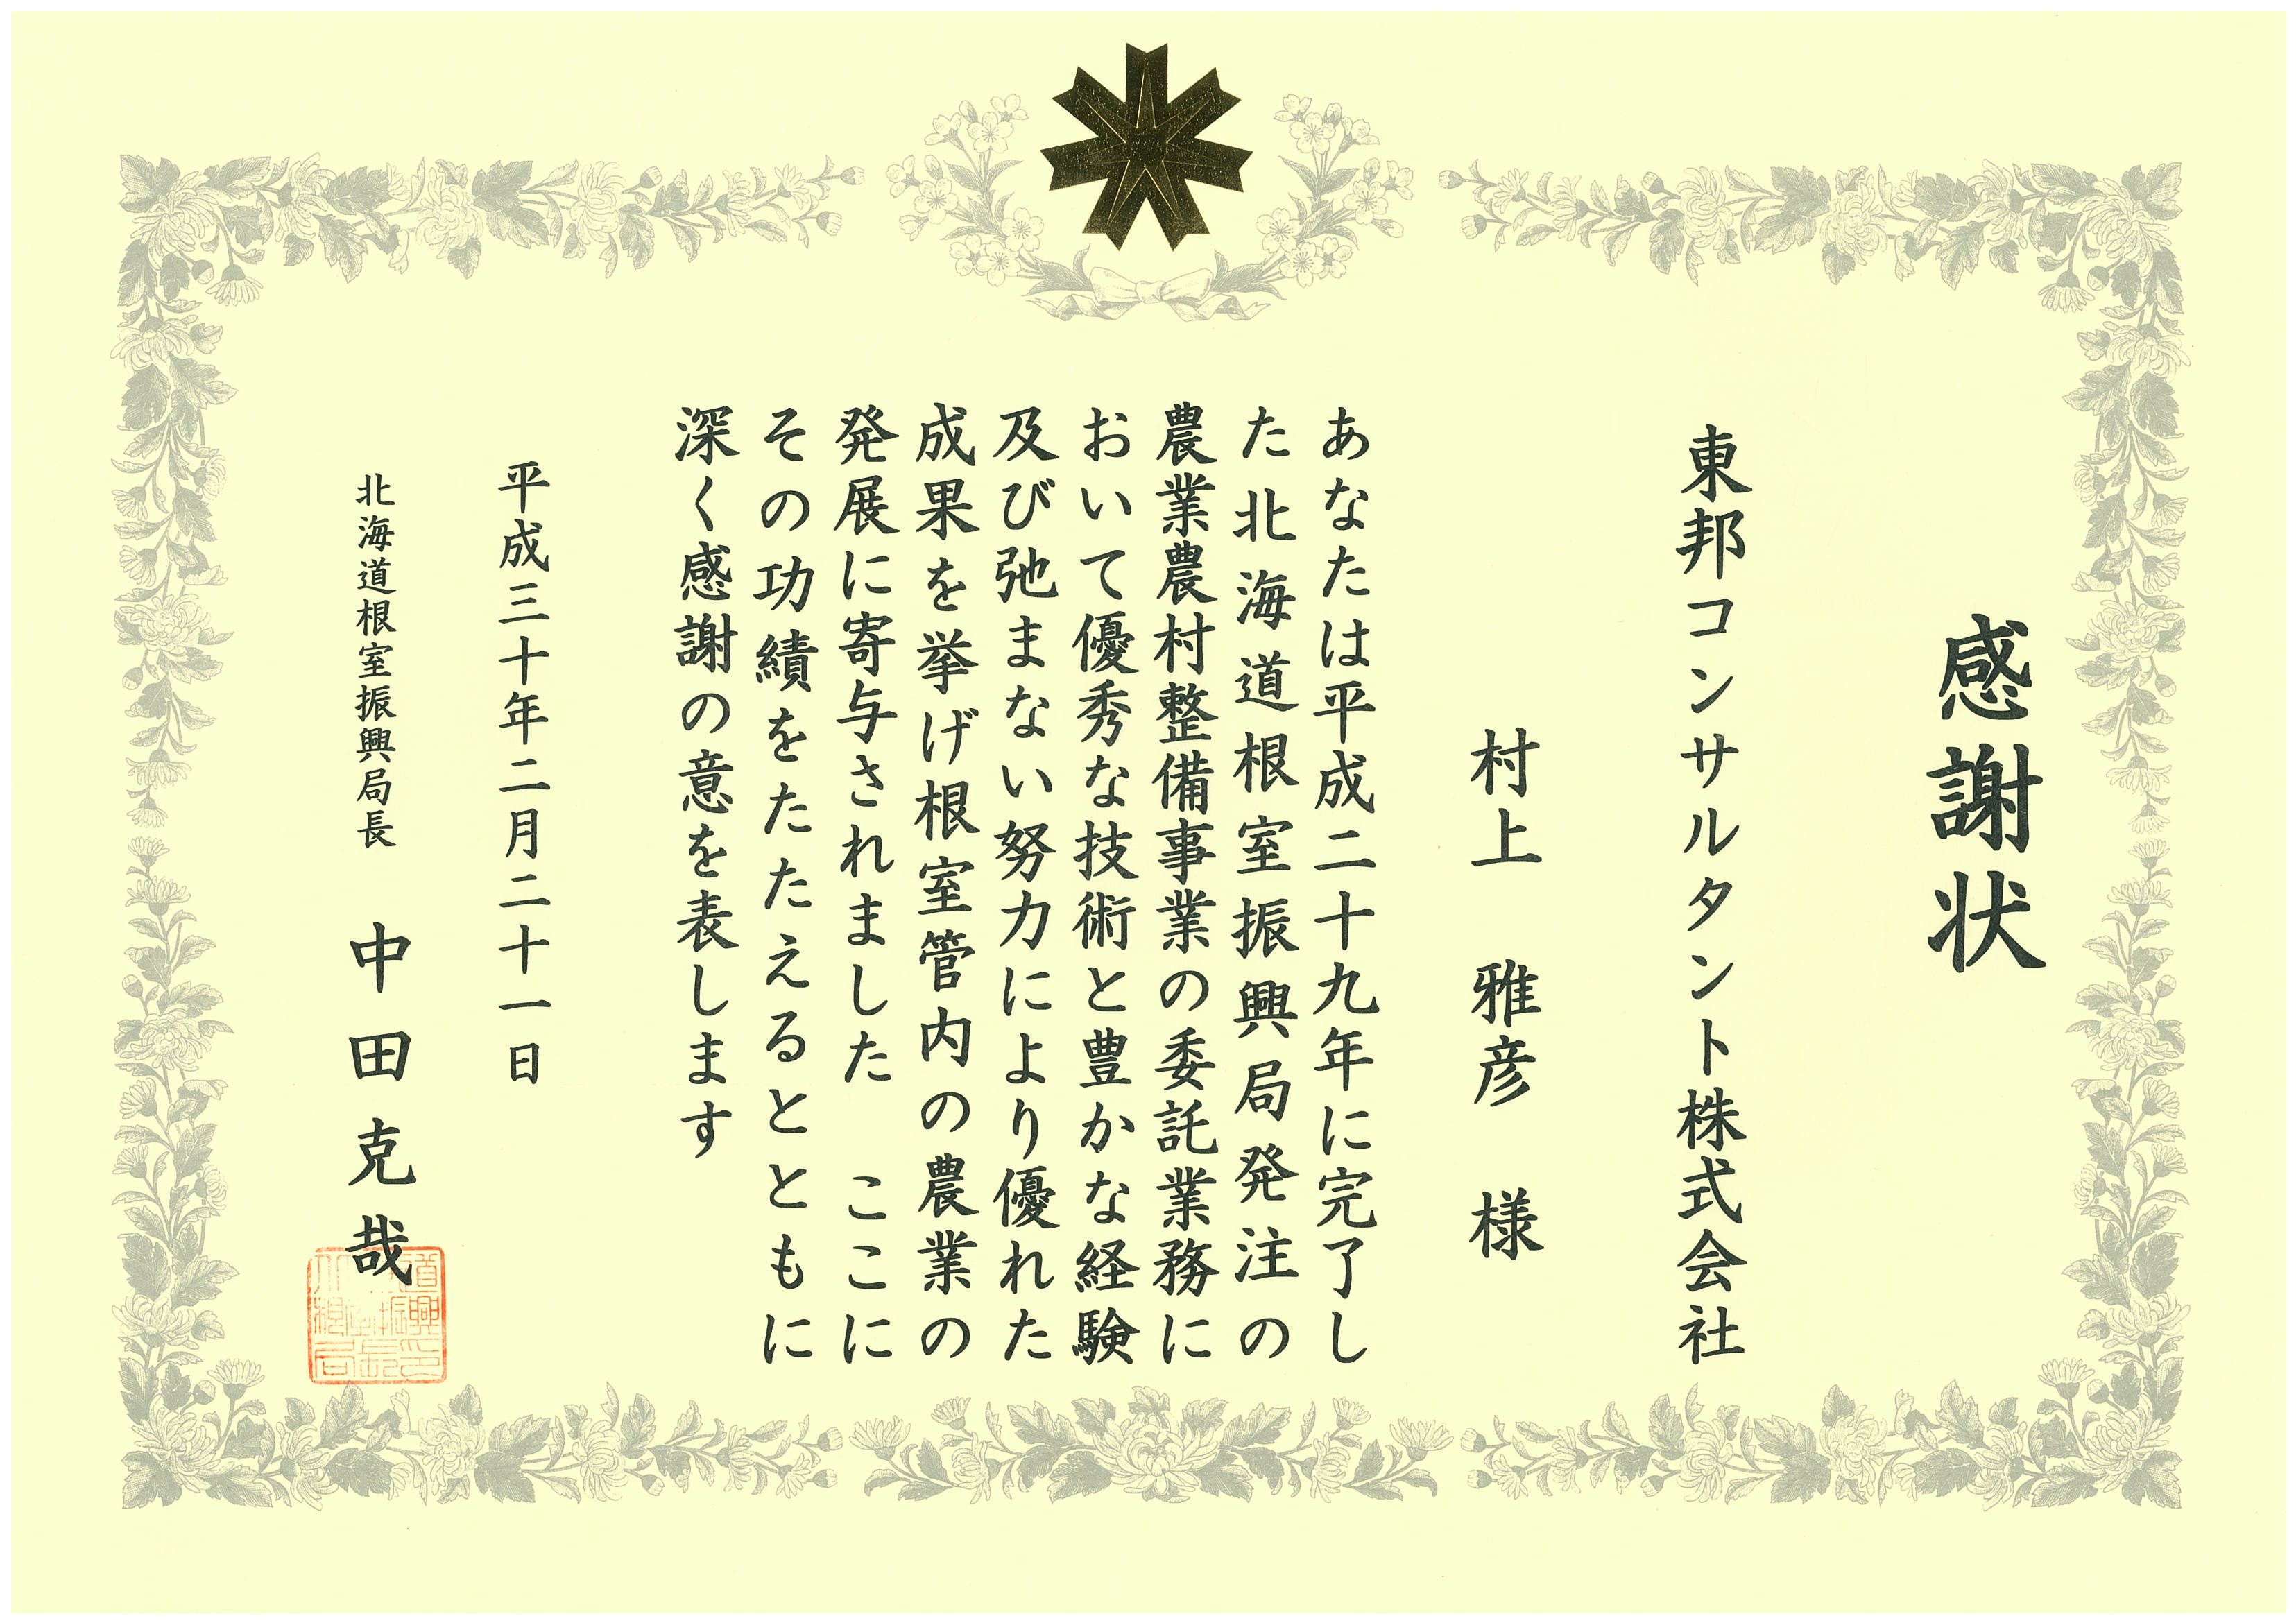 感謝状
東邦コンサルタント株式会社
村上 雅彦 様
あなたは平成二十九年に完了し
た北海道根室振興局発注の
農業農村整備事業の委託業務に
おいて優秀な技術と豊かな経験
及び弛まない努力により優れた
成果を挙げ根室管内の農業の
発展に寄与されました ここに
その功績をたたえるとともに
深く感謝の意を表します
平成三十年二月二十一日
北海道根室振興局長 中田克哉